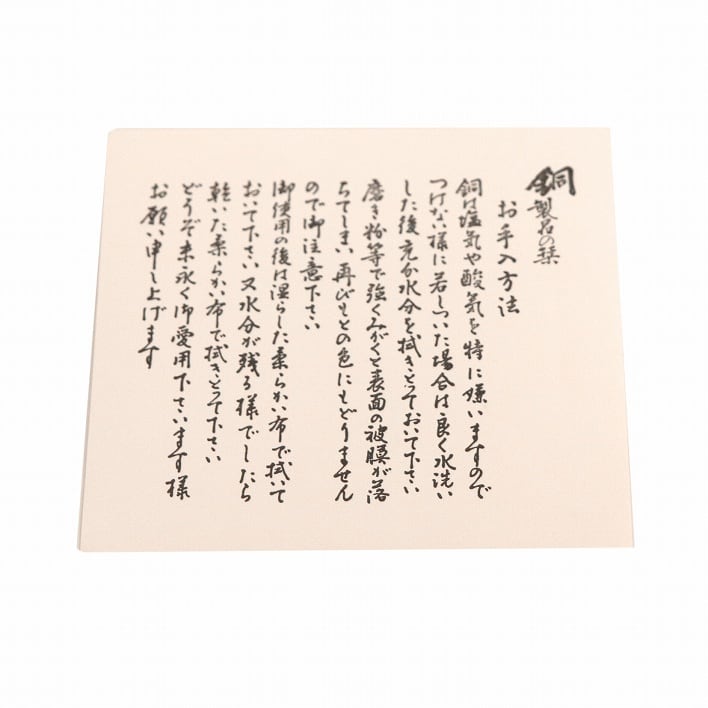 銅製品の栞
お手入方法
銅は塩気や酸気を特に嫌いますので
つけない様に若しついた場合は良く水洗い
した後充分水分を拭きとっておいて下さい
磨き粉等で強くみがくと表面の被膜が落
ちてしまい再びもとの色にもどりません
ので御注意下さい
御使用の後は湿らした柔らかい布で拭いて
おいて下さい又水分が残る様でしたら
乾いた柔らかい布で拭きとって下さい
どうぞ末永く御愛用下さいます様
お願い申し上げます